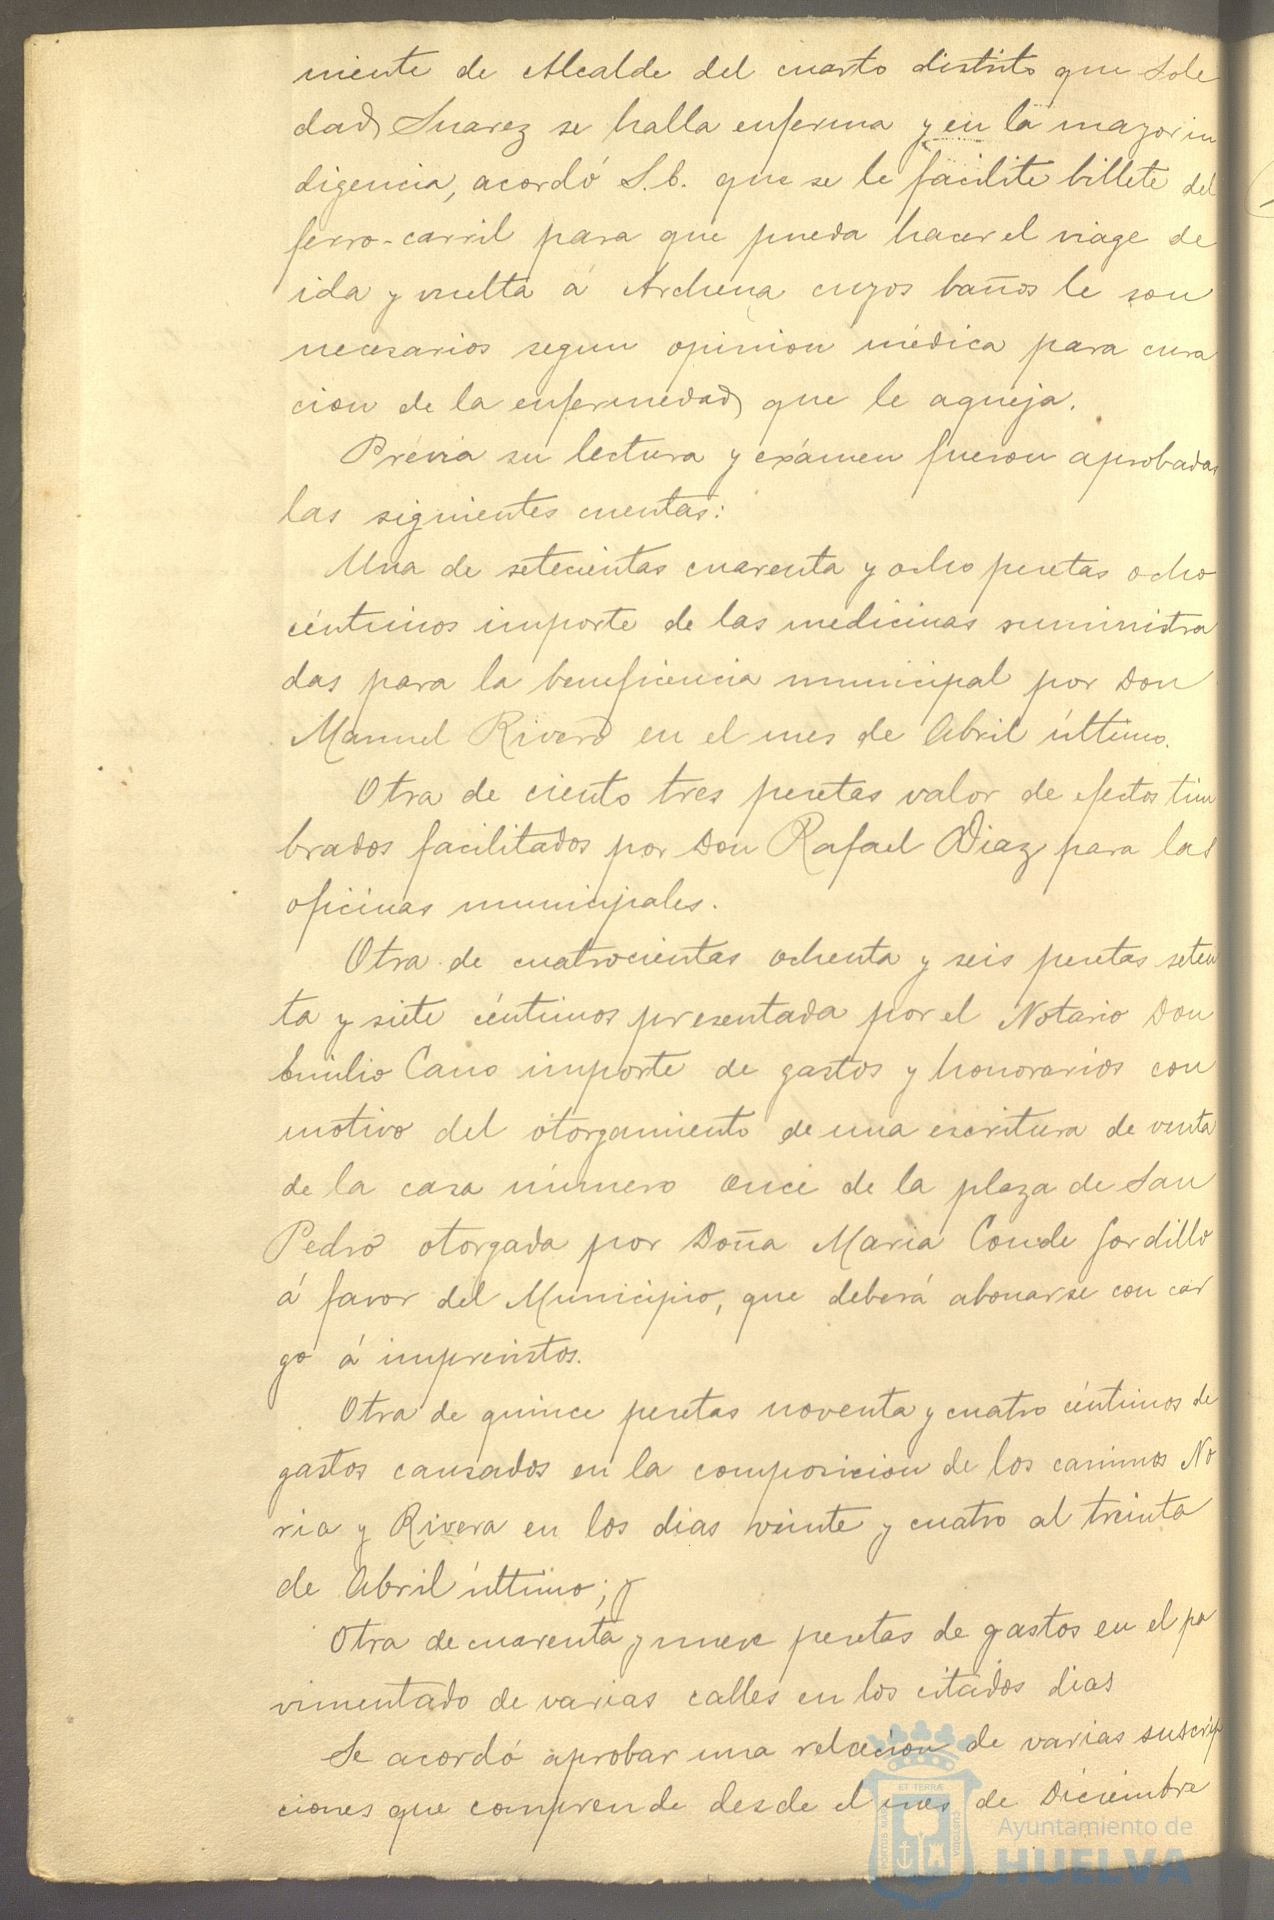 niente de Alcalde del cuarto distrito que Sole
dad Suarez se halla enferma y en la mayor in
digencia, acordó S.E. que se le facilite billete del
ferro-carril para que pueda hacer el viage de
ida y vuelta á Archena cuyos baños le son
necesarios segun opinion médica para cura
cion de la enfermedad que le aqueja.
Prévia su lectura y exámen fueron aprobadas
las siguientes cuentas:
Una de setecientas cuarenta y ocho pesetas ocho
céntimos importe de las medicinas suministra
das para la beneficencia municipal por Don
Manuel Rivero en el mes de Abril último.
Otra de ciento tres pesetas valor de efectos tim
brados facilitados por Don Rafael Diaz para las
oficinas municipales.
Otra de cuatrocientas ochenta y seis pesetas seten
ta y siete céntimos presentada por el Notario Don
Emilio Cano importe de gastos y honorarios con
motivo del otorgamiento de una escritura de venta
de la casa número once de la plaza de San
Pedro otorgada por Doña Maria Conde Gordillo
á favor del Municipio, que deberá abonarse con car
go á imprevistos.
Otra de quince pesetas noventa y cuatro céntimos de
gastos causados en la composicion de los caminos No
ria y Rivera en los dias veinte y cuatro al treinta
de Abril último; y
Otra de cuarenta y nueve pesetas de gastos en el pa
vimentado de varias calles en los citados dias
Se acordó aprobar una relacion de varias suscrip
ciones que comprende desde el mes de Diciembre
ET TERRÆ
PORTUS MARIS
CUSTODIA
Ayuntamiento de
HUELVA